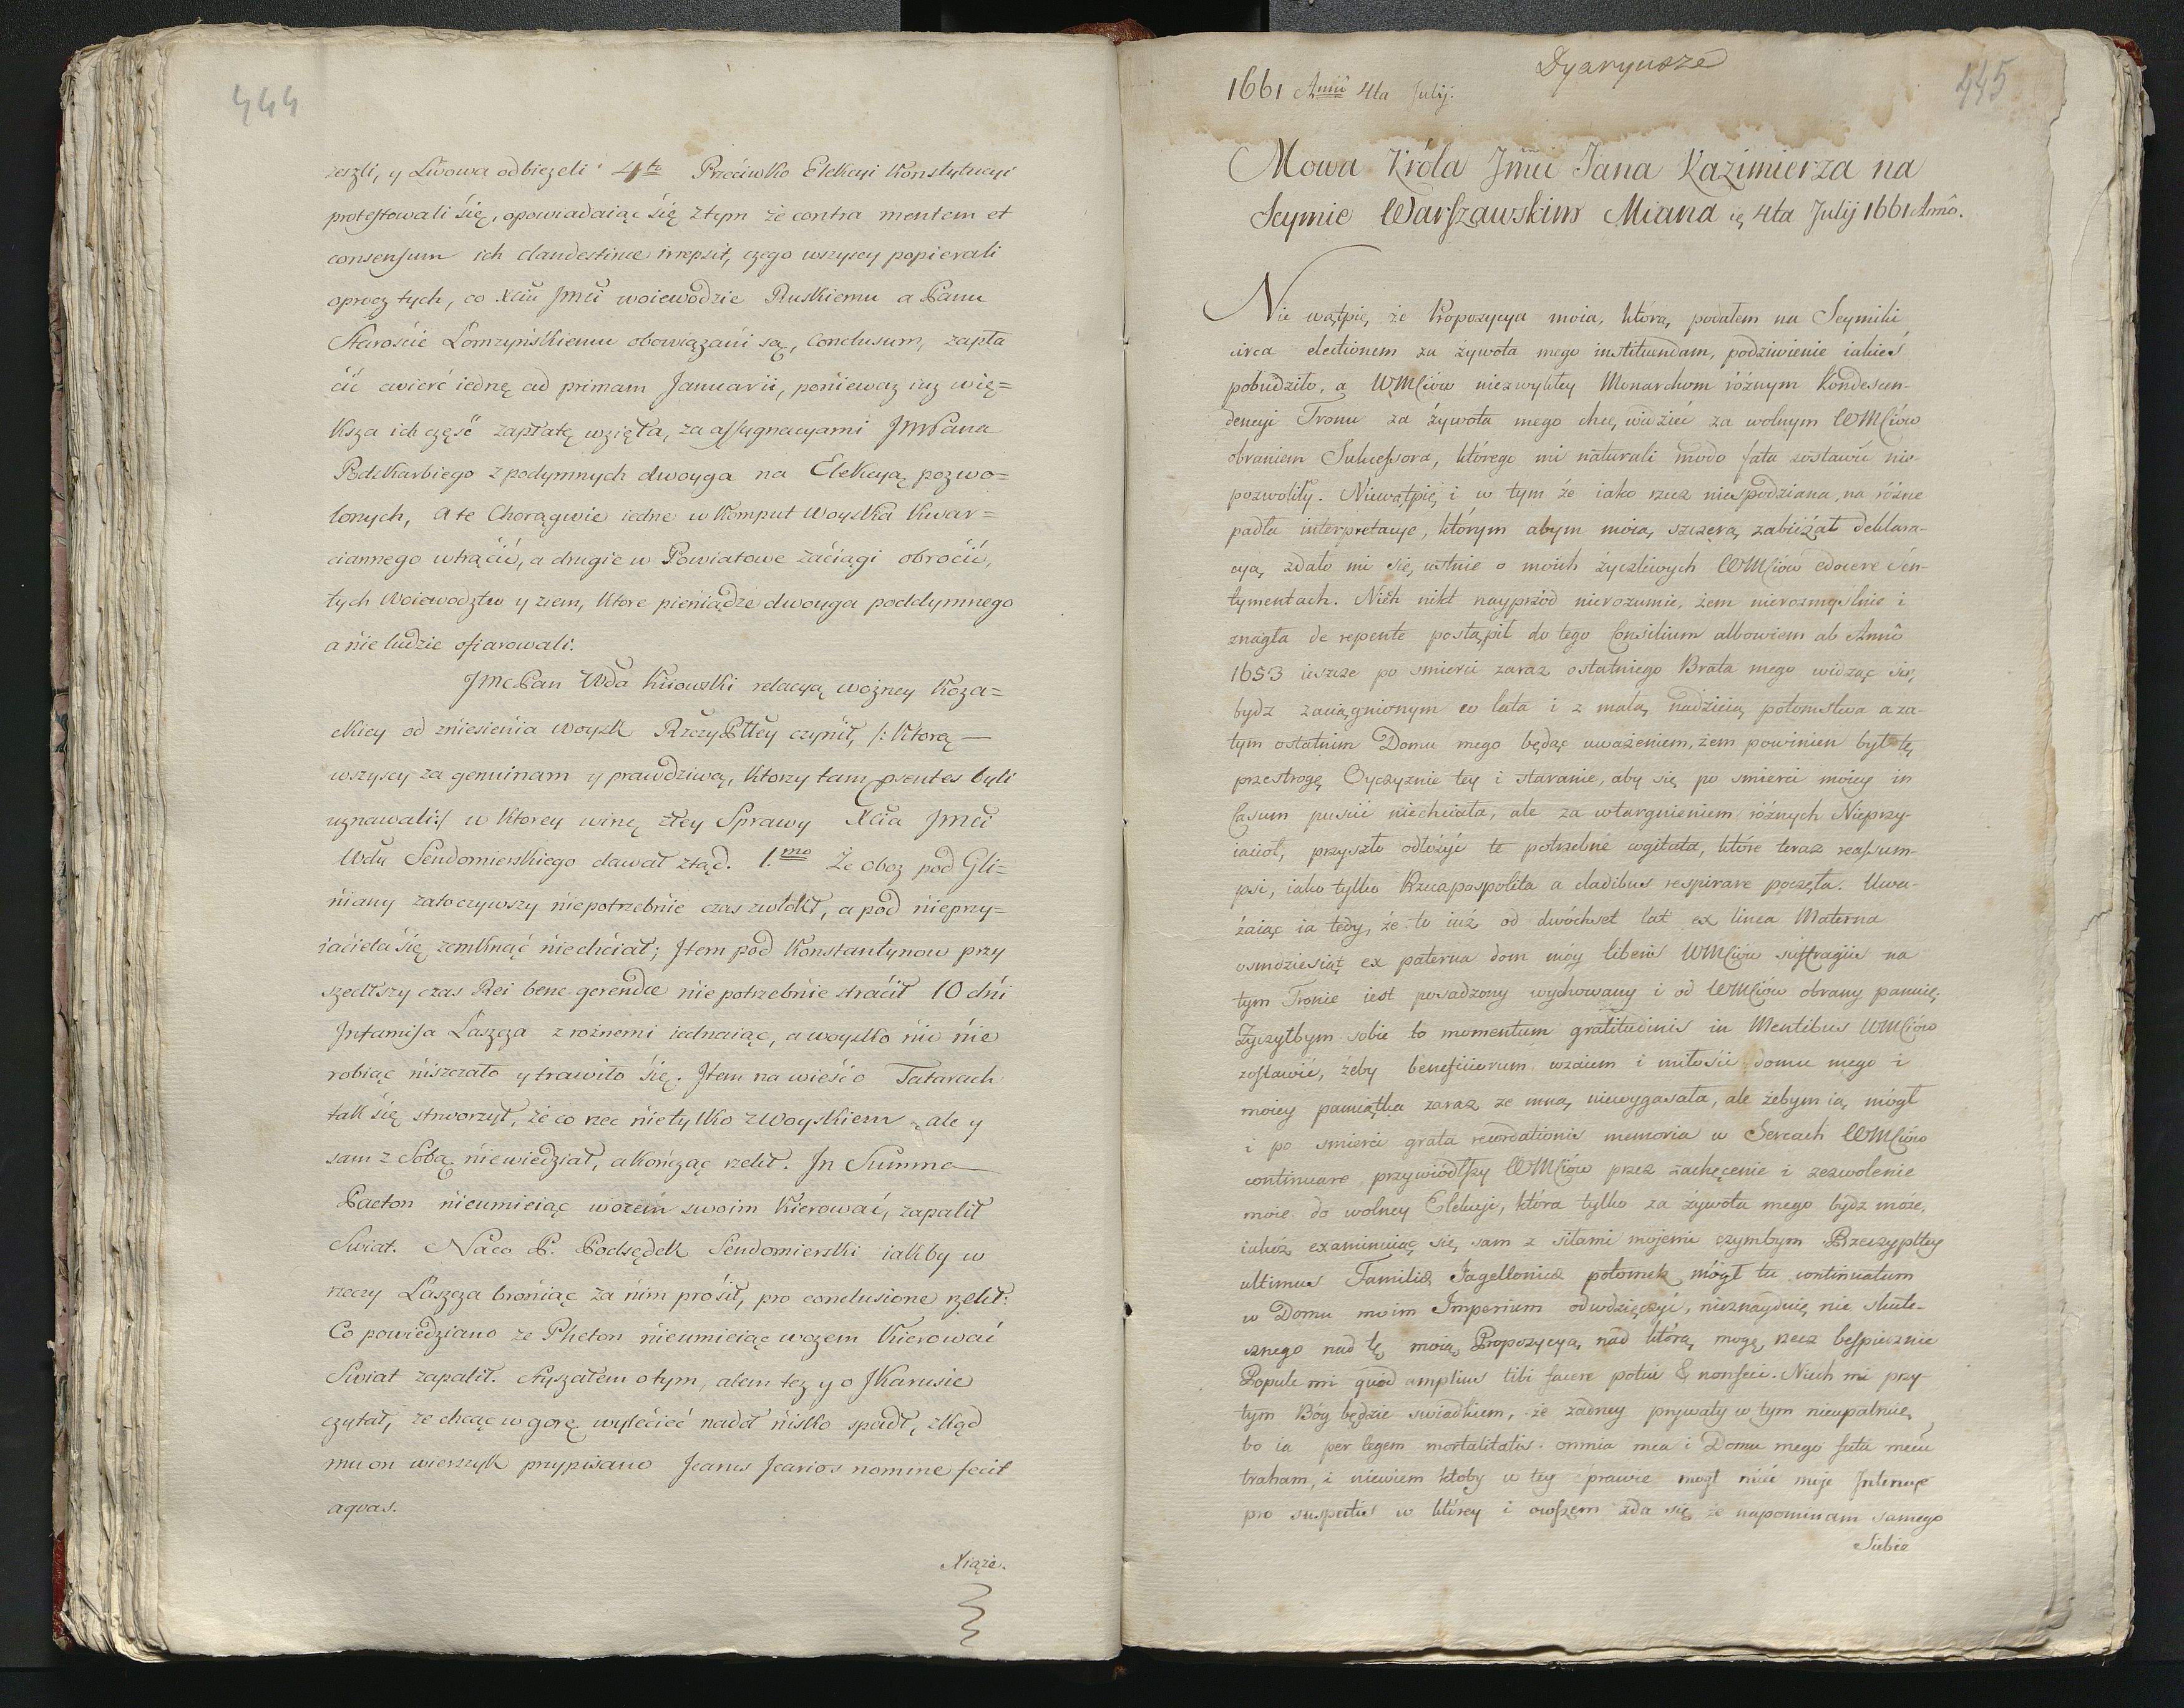 444
zeszli, y Lwowa odbieżeli 4to Przećiwko Elekcyi Konstytucyi
protestowali się, opowiadaiąc się ztym że contra mentem et
consensum ich clandestine irrepsit, czego wszyscy popierali
oprocz tych, co Xciu Jmći woiewodzie Ruskiemu a Panu
Starośćie Łomzyńskiemu obowiązani są, Conclusum, zapła
ćić cwierć iednę ad primam Januarii, ponieważ iuz wię=
Ksza ich część zapłatę wzięła, za assygnacyami JmPana
Podskarbiego z podymnych dwoyga na Elekcyą pozwo=
lonych, a te Chorągwie iedne w Komput Woyska Kwar=
ciannego wtrąćić, a drugie w Powiatowe zaćiągi obroćić,
tych Woiewodztw y ziem, Ktore pieniądze dwoyga poddymnego
a nie ludzie ofiarowali.
JmcPan Wda Kiiowski relacyą wożney Koza=
ckiey od znieśienia woysk RzczyPltey czynił, /: Ktorą —
wszyscy za genuinam y prawdziwą, Ktorzy tam psentes byli
uznawali :/ w Ktorey winę złey Sprawy Xcia Jmći
Wdy Sendomierskiego dawał ztąd. 1.mo Że oboz pod Gli=
niany zatoczywszy niepotrzebnie czas zwlokł, a pod nieprzy=
iaćiela się zemknąć niechćiał; Item pod Konstantynow przy
szedłszy czas Rei bene gerendæ niepotrzebnie straćił 10 dni
Infamisa Łaszcza z rożnemi iednaiąc, a woysko nic nie
robiąc niszczało y trawiło się. Item na wieść o Tatarach
tak się strworzył, że co rzec nietylko z Woyskiem, ale y
sam z Sobą niewiedział, a Kończąc rzekł. In Summa
Paeton nieumieiąc wozem swoim Kierować, zapalił
Swiat. Naco P. Podsędek Sendomierski iakby w
rzeczy Łaszcza broniąc za nim prośił, pro conclusione rzekł:
Co powiedziano ze Pheton nieumieiąc wozem Kierować
Swiat zapalił. słyszałem o tym, alem tez y o JKarusie
czytał, ze chcąc w gorę wylećieć nadoł nisko spadł, zkąd
mu on wierszyk przypisano Jcarus Jcarios nomine fecit
aquas.
Xiąże.
445
Dyaryusze
1661 Anno 4ta Julij.
Mowa Króla Jmći Jana Kazimierza na
Seymie Warszawskim Miana 4ta Julij 1661 Anno.
Nie wątpię, że Propozycya moia, którą podałem na Seymiki
circa electionem za żywota mego instituendam, podziwienie iakieś
pobudziło, a WMciów niezwykłey Monarchom różnym Kondescen-
dencyi Tronu za żywota mego chcę widzieć za wolnym WMciów
obraniem Sukcessora, którego mi naturali modo fata zostawić nie-
pozwoliły. Niewątpię i w tym że iako rzecz niespodziana, na różne
padła interpretacye, którym abym moią szczerą zabieżał deklara-
cyą zdało mi się ustnie o moich życzliwych WMciów edocere Sen-
tymentach. Niech nikt nayprzód nierozumie, żem nierozmyślnie i
znagła de repente postąpił do tego Consilium albowiem ab Anno
1653 ieszcze po smierci zaraz ostatniego Brata mego widząc się
bydz zaciągnionym w lata i z małą nadzieią potomstwa a za-
tym ostatnim Domu mego będąc uważeniem, żem powinien był tę
przestrogę Oyczyznie tey i staranie, aby się po smierci moiey in
Casum puscić niechciała, ale za wtargnieniem różnych Nieprzy-
iacioł, przyszło odłożyć te potrzebne cogitata, które teraz reassum-
psi, iako tylko Rzeczpospolita a cladibus respirare poczęła. Uwa-
żaiąc ia tedy, że to iuż od dwóchset lat ex linea Materna
osmdziesiąt ex paterna dom móy liberis WMciów suffragiis na
tym Tronie iest posadzony wychowany i od WMciów obrany panuię
Życzyłbym sobie to momentum gratitudinis in Mentibus WMciów
zostawić, żeby beneficiorum wzaiem i miłości domu mego i
moiey pamiątka zaraz ze mną niewygasała, ale żebym ią mógł
i po smierci grata recordationis memoria w Sercach WMciów
continuare przywiódłszy WMciów przez zachęcenie i zezwolenie
moie do wolney Elekcyi, która tylko za żywota mego bydz może,
iakoż examinuiąc się sam z siłami mojemi czymbym Rzeczypltey
ultimus Familiæ Jagellonicæ potomek mógł tu continuatum
w Domu moim Imperium odwdzięczyć, nieznayduię nic skute-
cznego nad tę moią Propozycyą, nad którą mogę rzecz bespiecznie
Popule mi quod amplius tibi facere potui & non feci. Niech mi przy-
tym Bóg będzie swiadkiem, że żadney prywaty w tym nieupatruię,
bo ia per legem mortalitatis omnia mea i Domu mego fata mecu
traham, i niewiem ktoby w tey sprawie mogł mieć moje Intencye
pro suspectis w którey i owszem zda się że napominam samego
Siebie